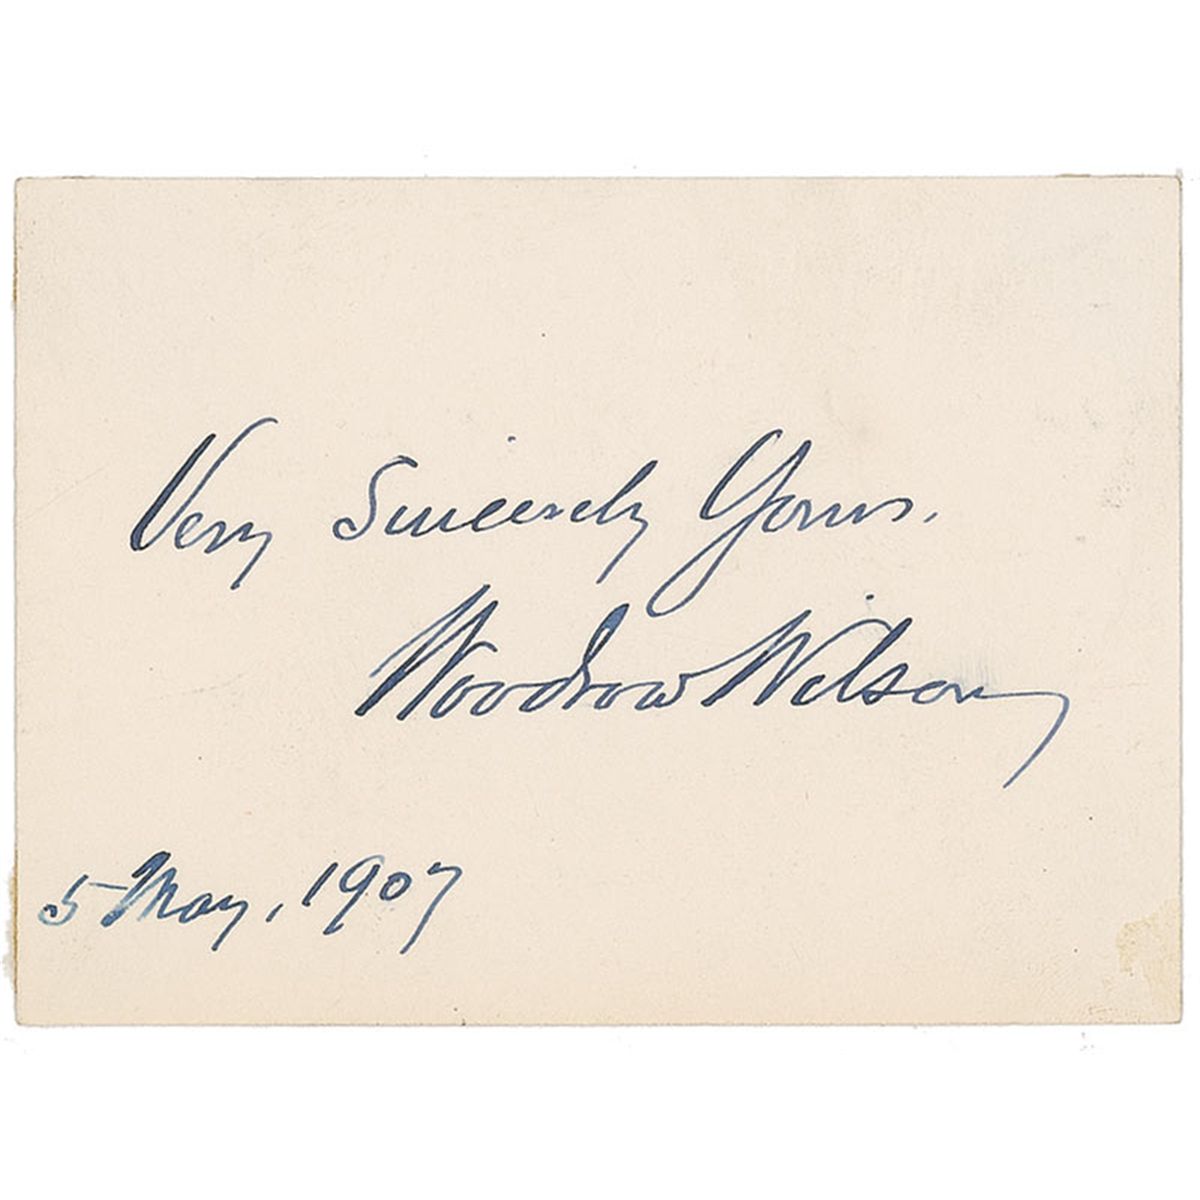 Very Sincerely Yours,
Woodrow Wilson
5 May, 1907